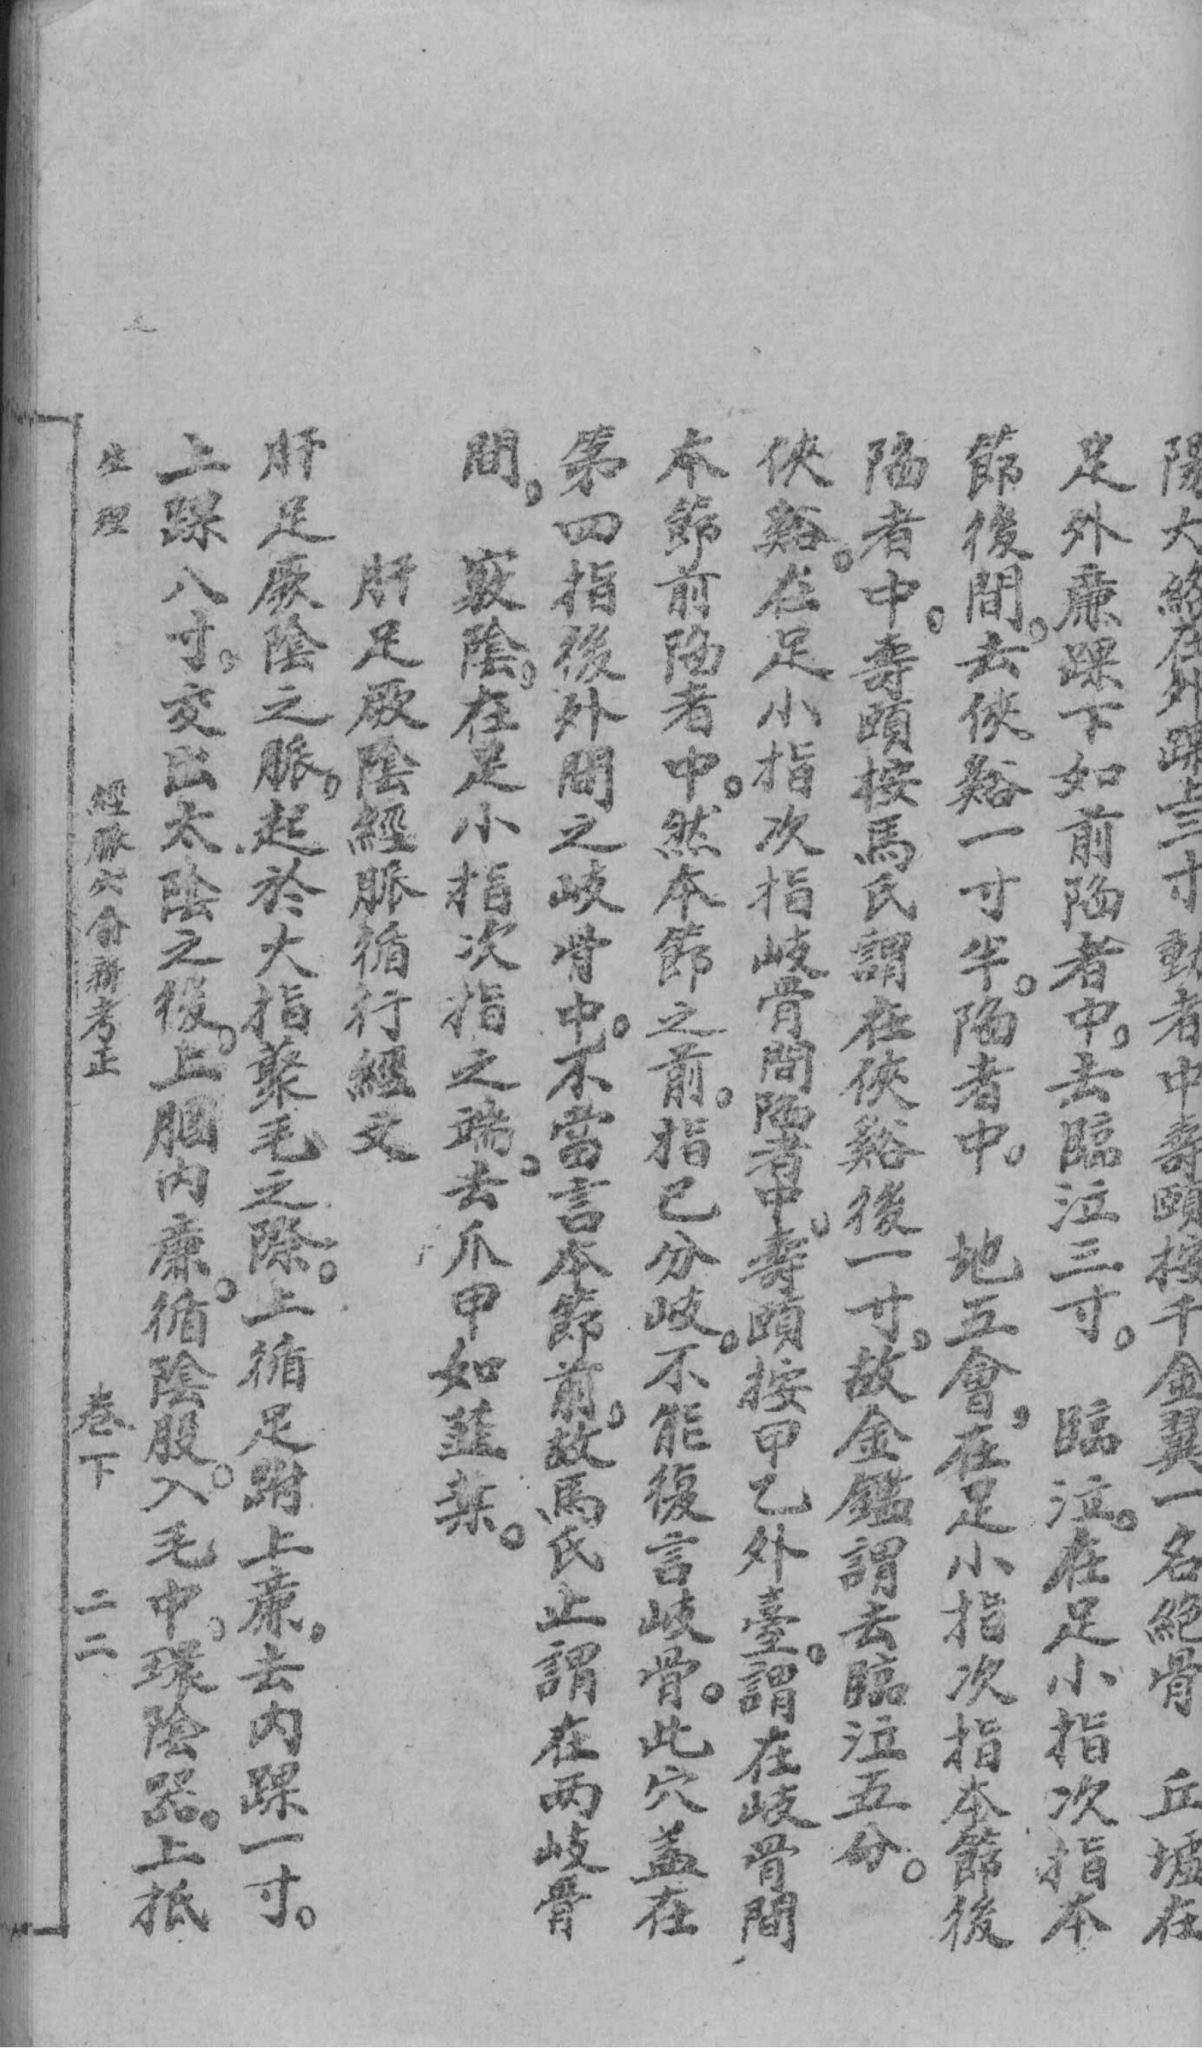 陽大絡在外踝上三寸動者中壽頤按千金翼一名絕骨　丘墟在
足外廉踝下如前陷者中。去臨泣三寸。　臨泣。在足小指次指本
節後間。去俠谿一寸半。陷者中。　地五會。在足小指次指本節後
陷者中。壽頤按馬氏謂在俠谿後一寸。故金鑑謂去臨泣五分。
俠谿。在足小指次指歧骨間陷者中。壽頤按甲乙外臺。謂在歧骨間
本節前陷者中。然本節之前。指已分歧。不能復言歧骨。此穴蓋在
第四指後外間之歧骨中。不當言本節前。故馬氏止謂在兩歧骨
間。　竅陰。在足小指次指之端。去爪甲如韮葉。
肝足厥陰經脈循行經文
肝足厥陰之脈。起於大指聚毛之際。上循足跗上廉。去內踝一寸。
上踝八寸。交出太陰之後。上膕內廉。循陰股。入毛中。環陰器。上抵
生理　經脈穴俞新考正　卷下　二二